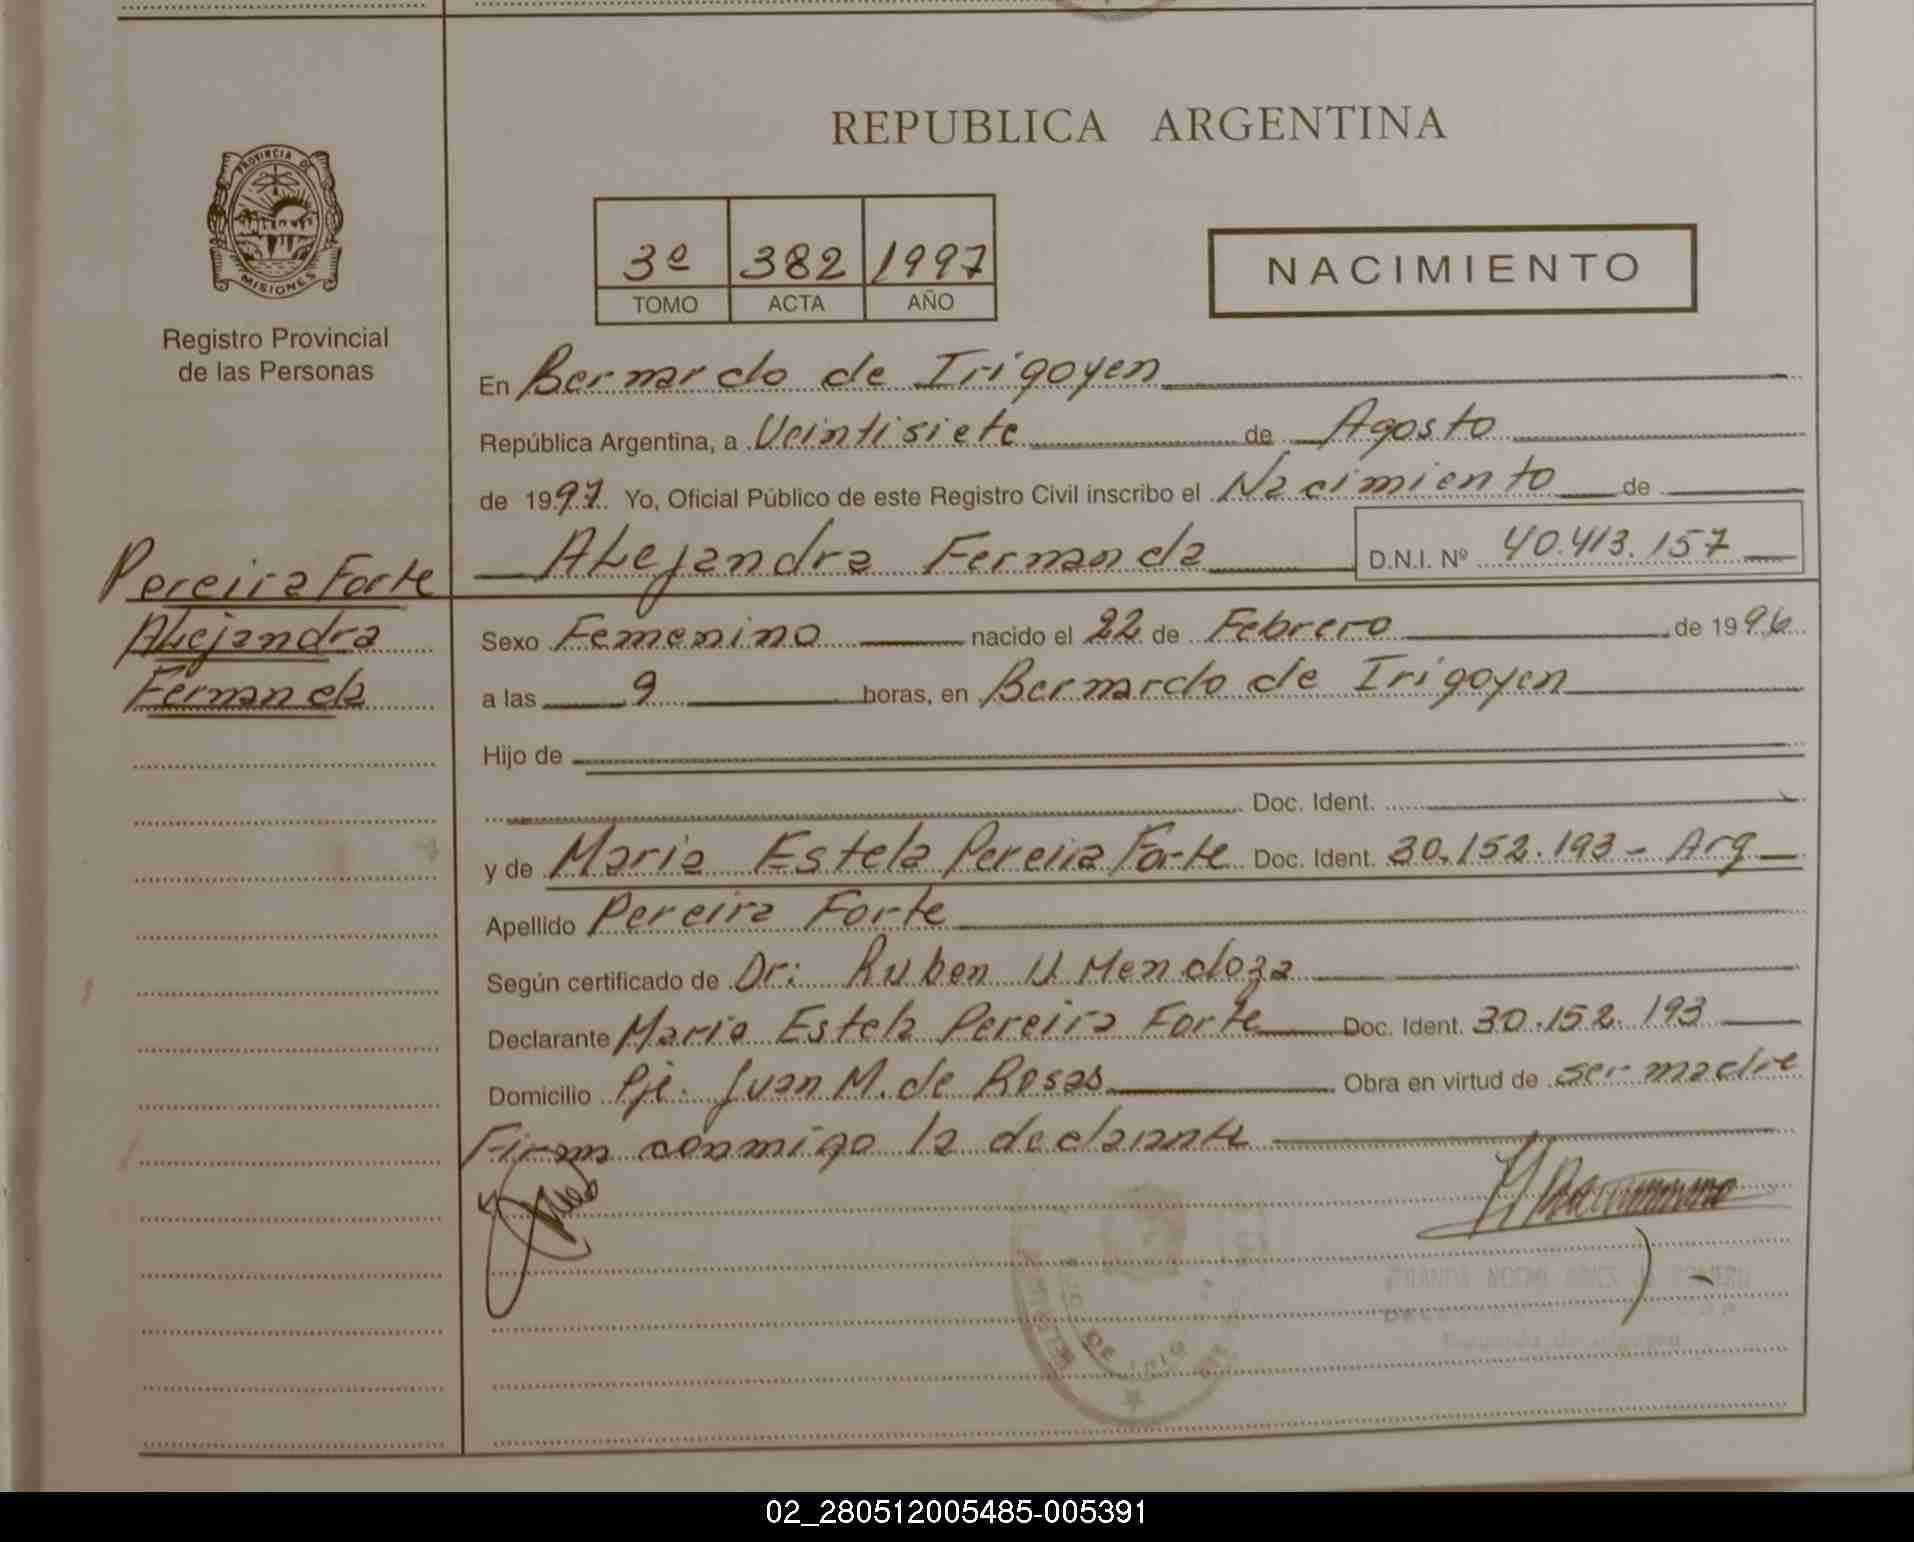 PROVINCIA DE
MISIONES
Registro Provincial
de las Personas
Pereira Forte
Alejandra
Fernanda
REPUBLICA ARGENTINA
3º 382 1997
TOMO ACTA AÑO
NACIMIENTO
En Bernardo de Irigoyen
República Argentina, a Veintisiete de Agosto
de 1997. Yo, Oficial Público de este Registro Civil inscribo el Nacimiento de
Alejandra Fernanda D.N.I. Nº 40.413.157
Sexo Femenino nacido el 22 de Febrero de 1996
a las 9 horas, en Bernardo de Irigoyen
Hijo de
Doc. Ident.
y de Maria Estela Pereira Forte Doc. Ident. 30.152.193 - Arg
Apellido Pereira Forte
Según certificado de Dr: Ruben U Mendoza
Declarante Maria Estela Pereira Forte Doc. Ident. 30.152.193
Domicilio Pje. Juan M. de Rosas Obra en virtud de ser madre
Firma conmigo la declarante
02_280512005485-005391